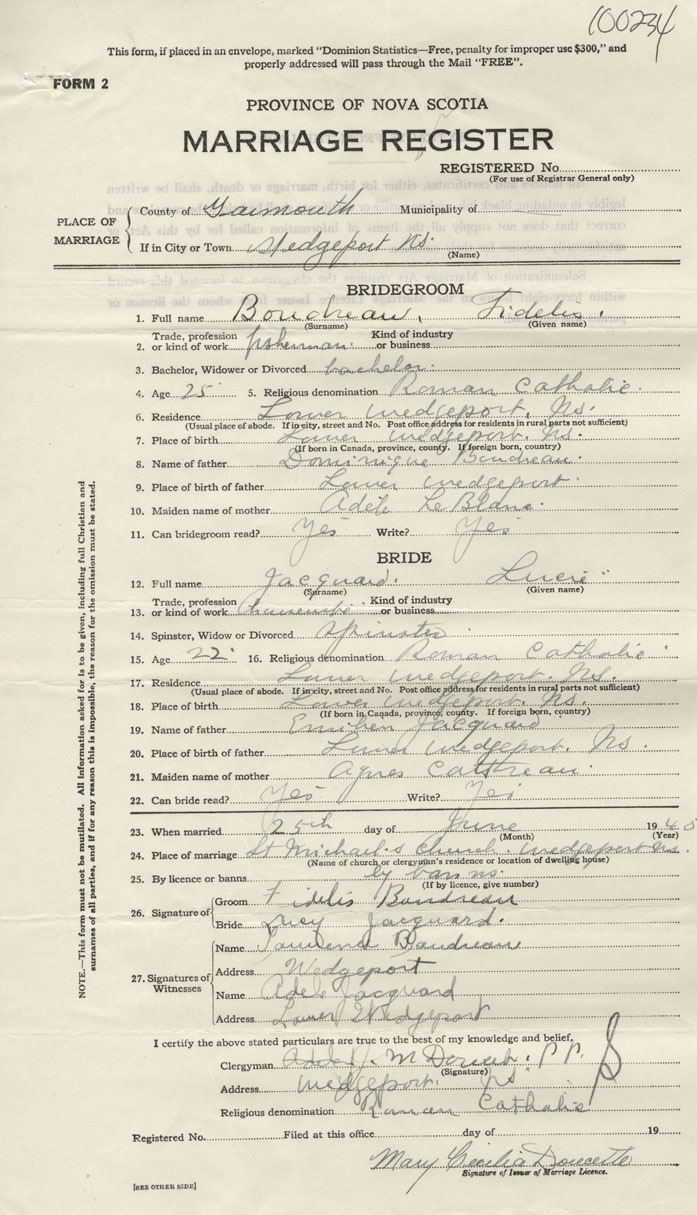 100234
This form, if placed in an envelope, marked "Dominion Statistics—Free, penalty for improper use $300," and
properly addressed will pass through the Mail "FREE".
FORM 2
PROVINCE OF NOVA SCOTIA
MARRIAGE REGISTER
REGISTERED No.
(For use of Registrar General only)
PLACE OF MARRIAGE
County of Yarmouth Municipality of
If in City or Town Wedgeport NS.
(Name)
BRIDEGROOM
1. Full name Boudreau, Fidelis.
(Surname) (Given name)
2. Trade, profession or kind of work fisherman. Kind of industry or business
3. Bachelor, Widower or Divorced bachelor.
4. Age 25 5. Religious denomination Roman Catholic.
6. Residence Lower Wedgeport, NS.
(Usual place of abode. If in city, street and No. Post office address for residents in rural parts not sufficient)
7. Place of birth Lower Wedgeport. NS.
(If born in Canada, province, county. If foreign born, country)
8. Name of father Dominique Boudreau.
9. Place of birth of father Lower Wedgeport.
10. Maiden name of mother Adele LeBlanc.
11. Can bridegroom read? Yes Write? Yes
BRIDE
12. Full name Jacquard. Lucie
(Surname) (Given name)
13. Trade, profession or kind of work Kind of industry or business
14. Spinster, Widow or Divorced Spinster
15. Age 22 16. Religious denomination Roman Catholic
17. Residence Lower Wedgeport. NS.
(Usual place of abode. If in city, street and No. Post office address for residents in rural parts not sufficient)
18. Place of birth Lower Wedgeport. NS.
(If born in Canada, province, county. If foreign born, country)
19. Name of father Jacquard
20. Place of birth of father Lower Wedgeport. NS
21. Maiden name of mother Agnes
22. Can bride read? Yes Write? Yes
23. When married 25th day of June 1940
(Month) (Year)
24. Place of marriage St Michael's Church. Wedgeport NS.
(Name of church or clergyman's residence or location of dwelling house)
25. By licence or banns by banns.
(If by licence, give number)
26. Signature of
Groom Fidelis Boudreau
Bride Lucy Jacquard.
27. Signatures of Witnesses
Name Boudreau
Address Wedgeport
Name Adele Jacquard
Address Lower Wedgeport
I certify the above stated particulars are true to the best of my knowledge and belief.
Clergyman P.P.
(Signature)
Address Wedgeport. NS.
Religious denomination Roman Catholic
Registered No. Filed at this office day of 19
Mary Cecilia Doucette
Signature of Issuer of Marriage Licence.
[SEE OTHER SIDE]
NOTE.—This form must not be mutilated. All information asked for is to be given, including full Christian and
surnames of all parties, and if for any reason this is impossible, the reason for the omission must be stated.